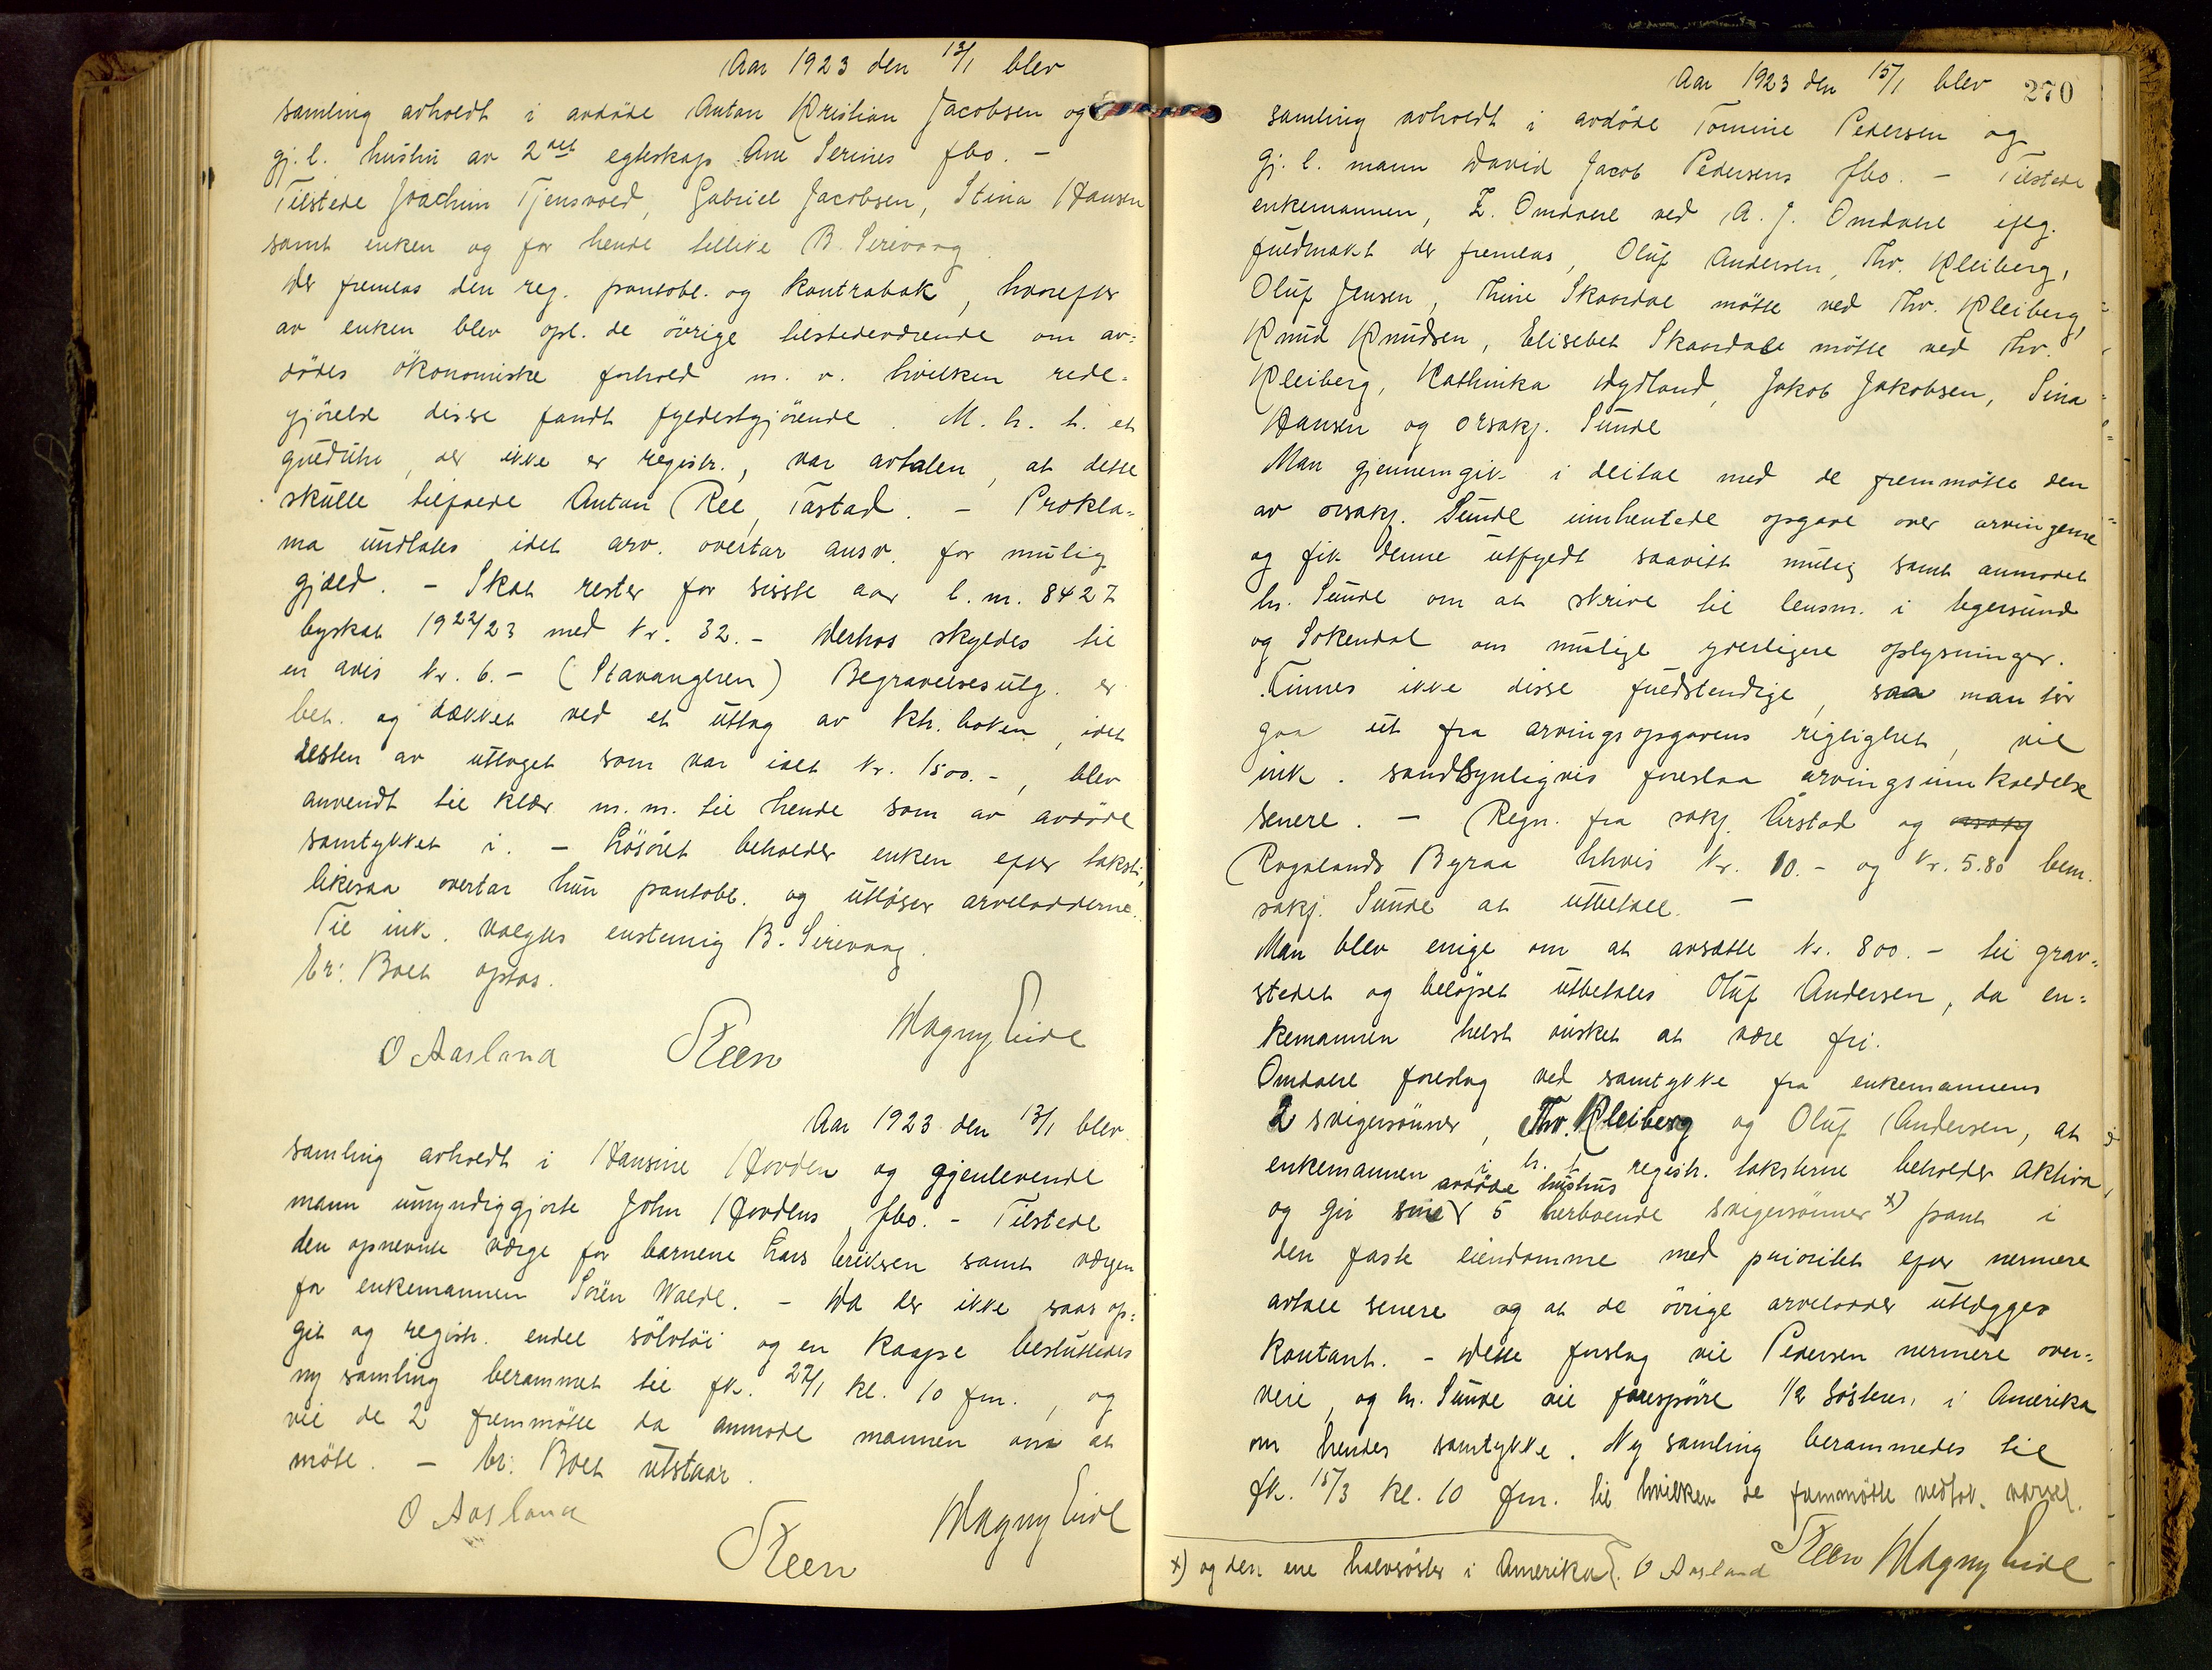 Aar 1923 den 13/1 blev
samling avholdt i avdöde Anton Kristian Jacobsen og
gj. l. hustru av 2det egteskap Ane Serines fbo. -
Tilstede Joachim Tjensvold, Gabriel Jacobsen, Stina Hansen
samt enken og for hende tillike B. Sirevaag.
Der fremlas den reg. pantobl. og kontrabok, hvorefter
av enken blev opl. de övrige tilstedeværende om av=
dödes ökonomiske forhold m. v. hvilken rede=
gjörelse disse fandt fyldestgjörende. M. h. t. et
gulduhr, der ikke er registr., var avtalen, at dette
skulle tilfalde Anton Ree, Tastad. - Prokla=
ma undlates idet arv. overtar ansv. for mulig
gjæld. - Skat rester for sisste aar l. m. 8427
byskat 1922/23 med kr. 32.- Derhos skyldes til
en avis kr. 6.- (Stavangeren) Begravelsesutg. er
bet. og dækket ved et uttag av ktr. boken, idet
resten av uttaget som var ialt kr. 1500.-, blev
anvendt til klær m. m. til hende som av avdöde
samtykket i. - Lösöret beholder enken efter takst,
likesaa overtar hun pantobl. og utlöser arveladderne.
Til ink. valgtes enstemig B. Sirevaag.
Er: Boet optas.
O Aasland Steen Magny Eide
Aar 1923 den 13/1 blev
samling avholdt i Hansine Hovden og gjenlevende
mann umyndiggjorte John Hovdens fbo. - Tilstede
den opnevnte værge for barnene Lars Eriksen samt værgen
for enkemannen Sören Walde. - Da der ikke saas op=
git og registr. endel sölvtöi og en kaape besluttedes
ny samling berammet til fk. 22/1 kl. 10 fm., og
vil de 2 fremmötte da anmode mannen om at
möte. - Er: Boet utstaar.
O Aasland Steen Magny Eide
270
Aar 1923 den 15/1 blev
samling avholdt i avdöde Tomine Pedersen og
gj. l. mann David Jacob Pedersens fbo. - Tilstede
enkemannen, Z. Omdal ved A. J. Omdal iflg.
fuldmakt der fremlas, Oluf Andersen, Thv. Kleiberg,
Oluf Jensen, Thine Skaardal mötte ved Thv. Kleiberg,
Knud Knudsen, Elisebet Skaardal mötte ved Thv.
Kleiberg, Kathinka Dydland, Jakob Jakobsen, Sina
Hansen og orsakf. Sunde
Man gjennemgik i deital med de fremmötte den
av orsakf. Sunde innhentede opgave over arvingerne
og fik denne utfyldt saavitt mulig samt anmodet
hr. Sunde om at skrive til lensm. i Egersund
og Sokendal om mulige yderligere oplysninger.
Finnes ikke disse fuldstendige, saa man tör
gaa ut fra arvingsopgavens riglighet, vil
ink. sandsynligvis foreslaa arvingsinnkaldelse
senere. - Regn. fra sakf. Årstad og orsakf
Rogalands Byraa hhvis kr. 10.- og kr. 5.80 bem.
sakf. Sunde at utbetale. -
Man blev enige om at avsætte kr. 800.- til grav=
stedet og belöpet utbetales Oluf Andersen, da en=
kemannen helst önsket at være fri.
Omdal foreslog ved samtykke fra enkemannens
2 svigersönner, Thv. Kleiberg og Oluf Andersen, at
enkemannen i h. t. registr. taksterne beholder aktiva,
avdöde hustrus
og gir sine 5 herboende svigersönner x) pant i
den faste eiendomme med prioritet efter nermere
avtale senere og at de övrige arvelodder utlægges
kontant. - Dette forslag vil Pedersen nermere over=
veie, og hr. Sunde vil forespörre 1/2 sösteren i Amerika
om hendes samtykke. Ny samling berammedes til
fk. 15/3 kl. 10 fm. til hvilken de fremmötte vedtok varsel.
x) og den ene halvsöster i Amerika. O Aasland Steen Magny Eide